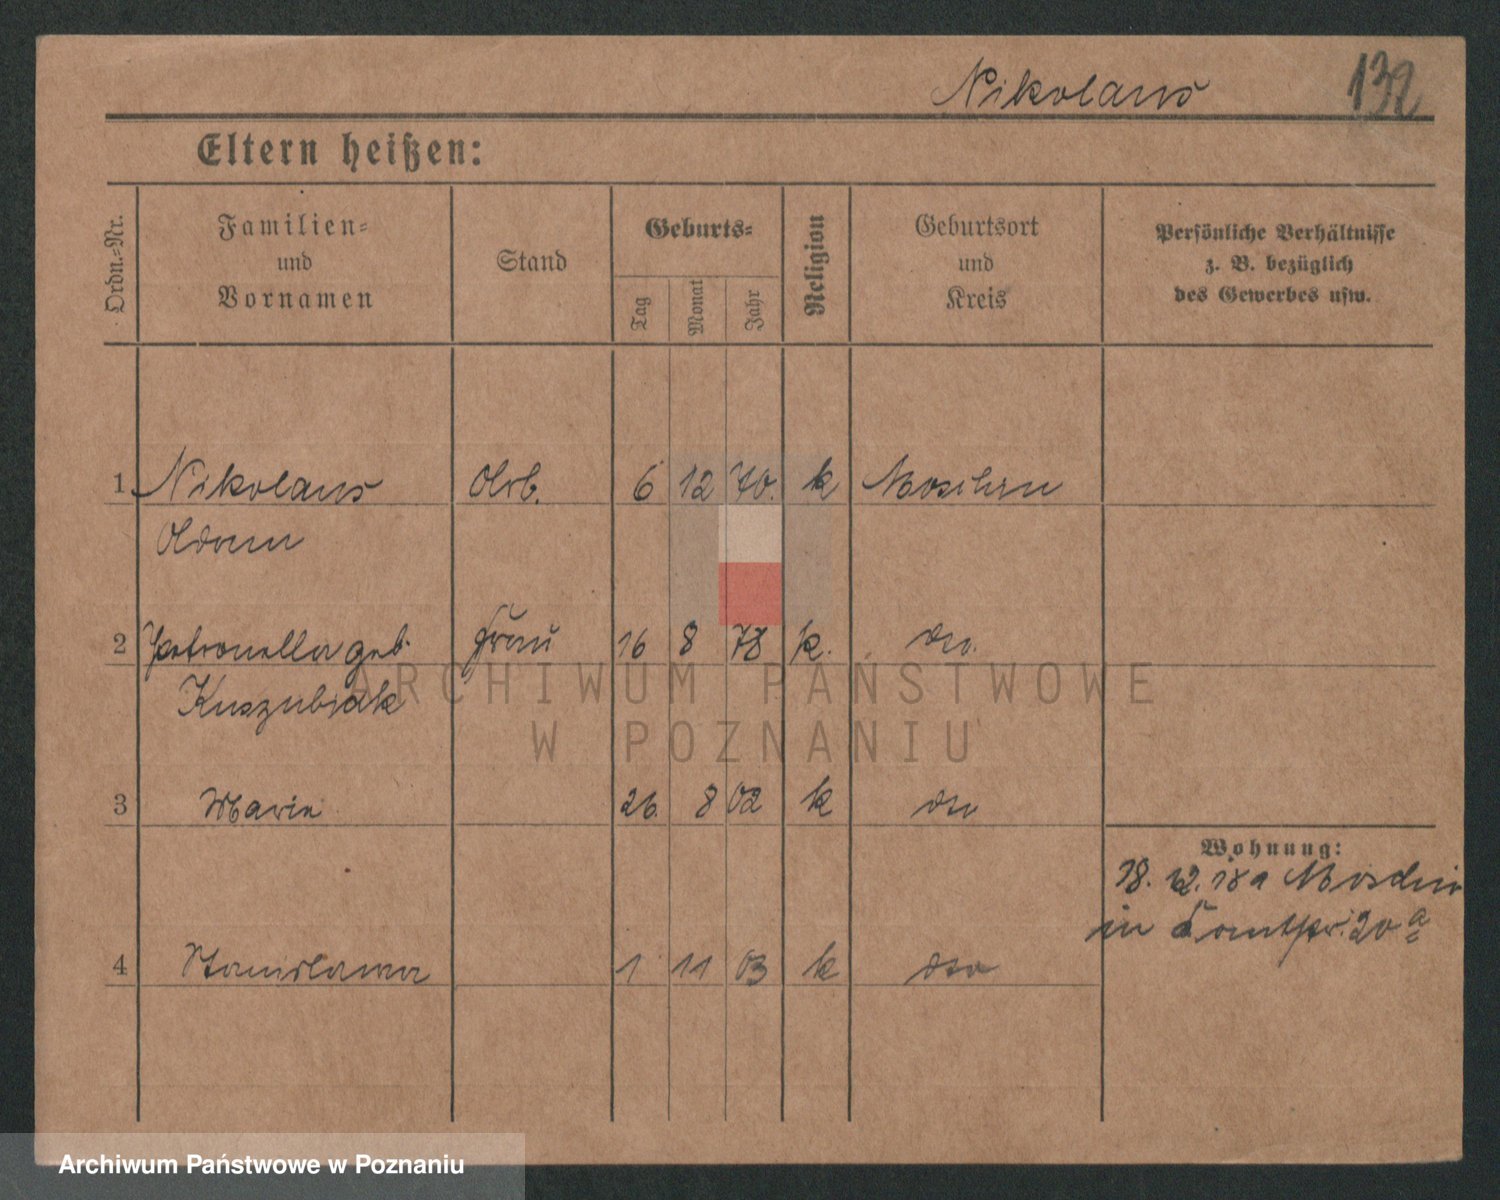 Nikolaus
132
Eltern heißen:
Ordn.-Nr.
Familien-
und
Vornamen
Stand
Geburts-
Tag
Monat
Jahr
Religion
Geburtsort
und
Kreis
Persönliche Verhältnisse
z. B. bezüglich
des Gewerbes usw.
1 Nikolaus Arb. 6 12 70. k Moschin
Adam
2 Petronella geb. Frau 16 8 78 k. dto.
Kuszubiak
3 Marie 26. 8 02 k dto
Wohnung:
18. 12. Moschin
in 20 a
4 Stanislawa 1 11 03 k dto
ARCHIWUM PAŃSTWOWE
W POZNANIU
Archiwum Państwowe w Poznaniu